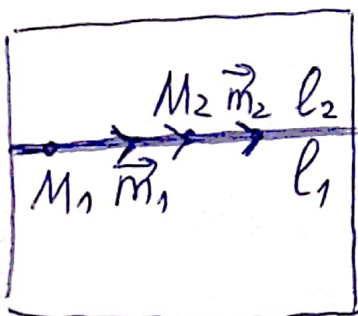 M₂ m⃗₂ l₂
M₁ m⃗₁ l₁